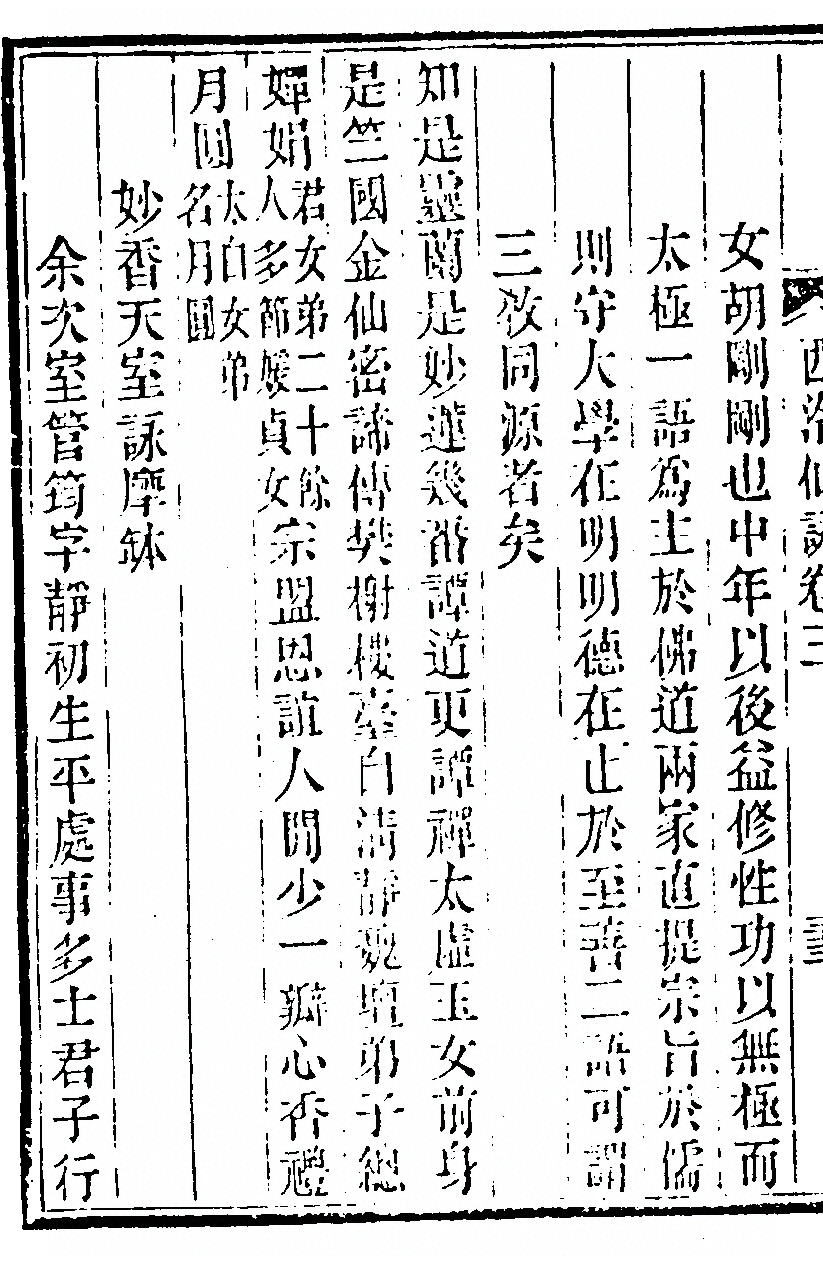 西泠仙詠卷三
女胡剛剛也中年以後益修性功以無極而
太極一語為主於佛道兩家直提宗旨於儒
則守大學在明明德在止於至善二語可謂
三敎同源者矣
知是靈蘭是妙蓮幾番譚道更譚禪太虛玉女前身
是竺國金仙密諦傳樊榭樓臺白清靜魏壇弟子總
嬋娟君女弟二十餘人多節媛貞女宗盟恩誼人間少一瓣心香禮
月圓太白女弟名月圓
妙香天室詠摩鉢
余次室管筠字靜初生平處事多士君子行